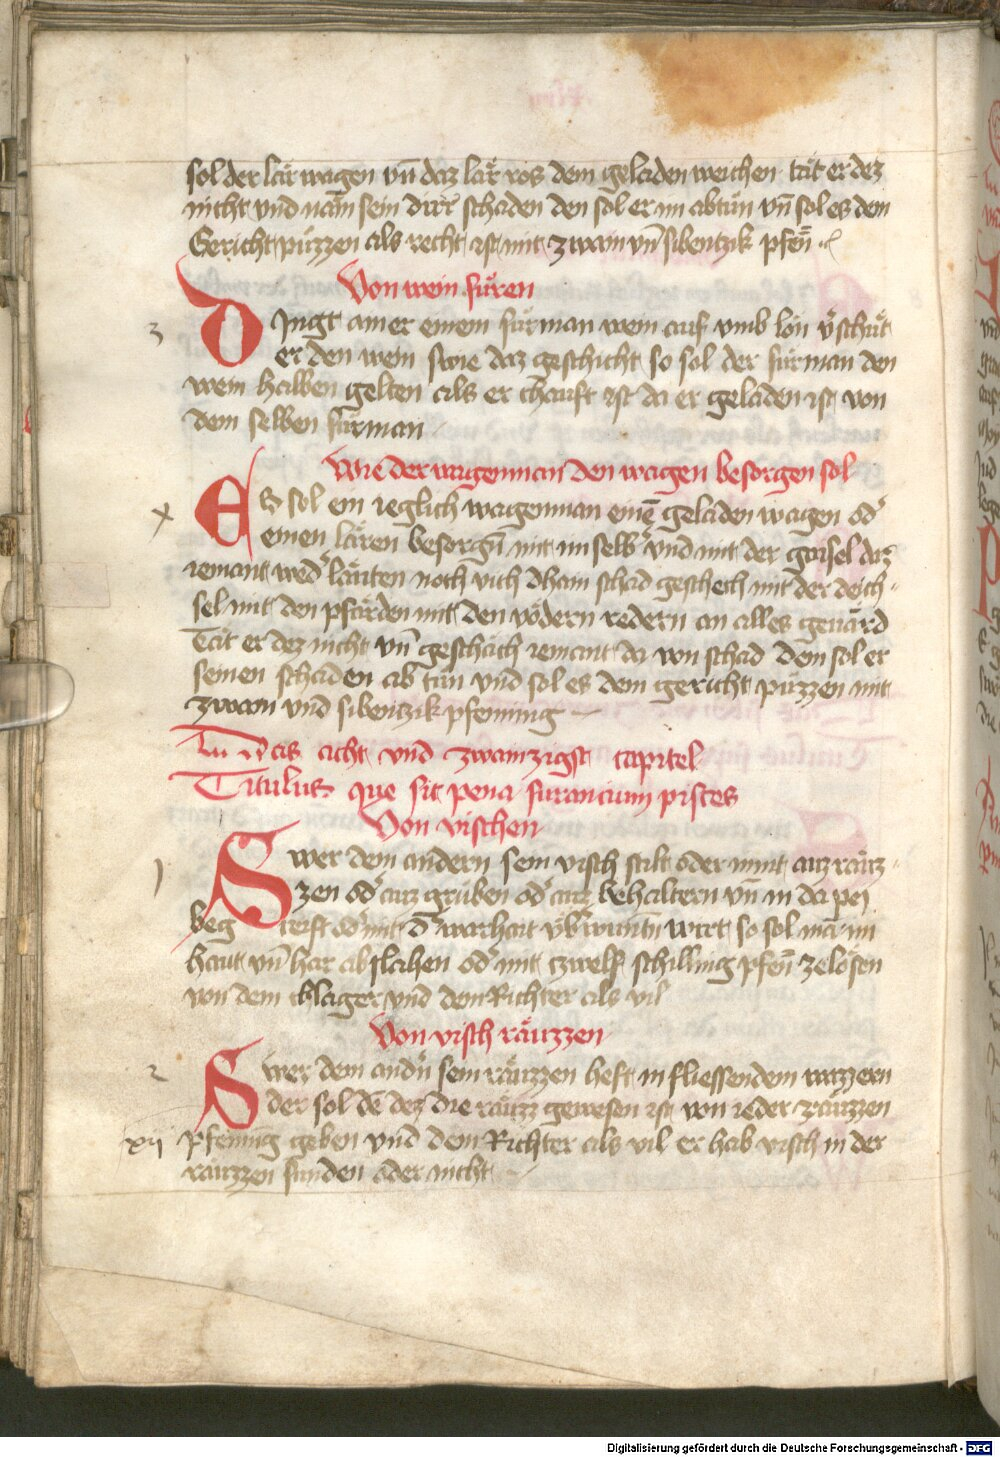 sol der lär wagen vn̄ daz lär ros dem geladen weichen tät er dez
nicht vnd näm sein dirr schaden den sol er im abtůn vn̄ sol es dem
Gericht půzzen als recht ist mit zwain vn̄ sibentzik pfen̄
Von wein fůren
3 Dingt amer einem fůrman wein auf vmb lon v̄schüt
er den wein swie daz geschicht so sol der fůrman den
wein halben gelten als er chauft ist da er geladen ist von
dem selben fůrman
Wie der wagenman den wagen besorgen sol
x Es sol ein ieglich wagenman einē geladen wagen od̄
einen lären besorgn̄ mit im selb̄ vnd mit der gaisel daz
iemant wed̄ läuten noch vich dhain schad geschech mit der deich-
sel mit den pfärden mit den vödern redern an alles geuärd
Tät er dez nicht vn̄ geschäch iemant da von schad dem sol er
seinen schaden ab tůn vnd sol es dem gericht půzzen mit
zwain vnd sibentzik pfenning
acht vnd zwainzigst capitel
Titulus que sit pena furancium pisces
Von vischen
1 Swer dem andern sein visch stilt oder nimt auz räuz-
zen od̄ auz gruben od̄ auz behaltern vn̄ in da pej
begreift od̄ mit d̄ warhait vb̄wunn̄ wirt so sol mā im
haut vn̄ har abslahen od̄ mit zwelf schilling pfen̄ ze lösen
von dem chlager vnd dem Richter als vil
Von visch räuzzen
2 Swer dem and̄n sein räuzzen heft in fliessendem wazzern
der sol dē dez die räuzz gewesen ist von ieder räuzzen
xij pfenning geben vnd dem Richter als vil er hab visch in der
räuzzen funden oder nicht
Digitalisierung gefördert durch die Deutsche Forschungsgemeinschaft - DFG